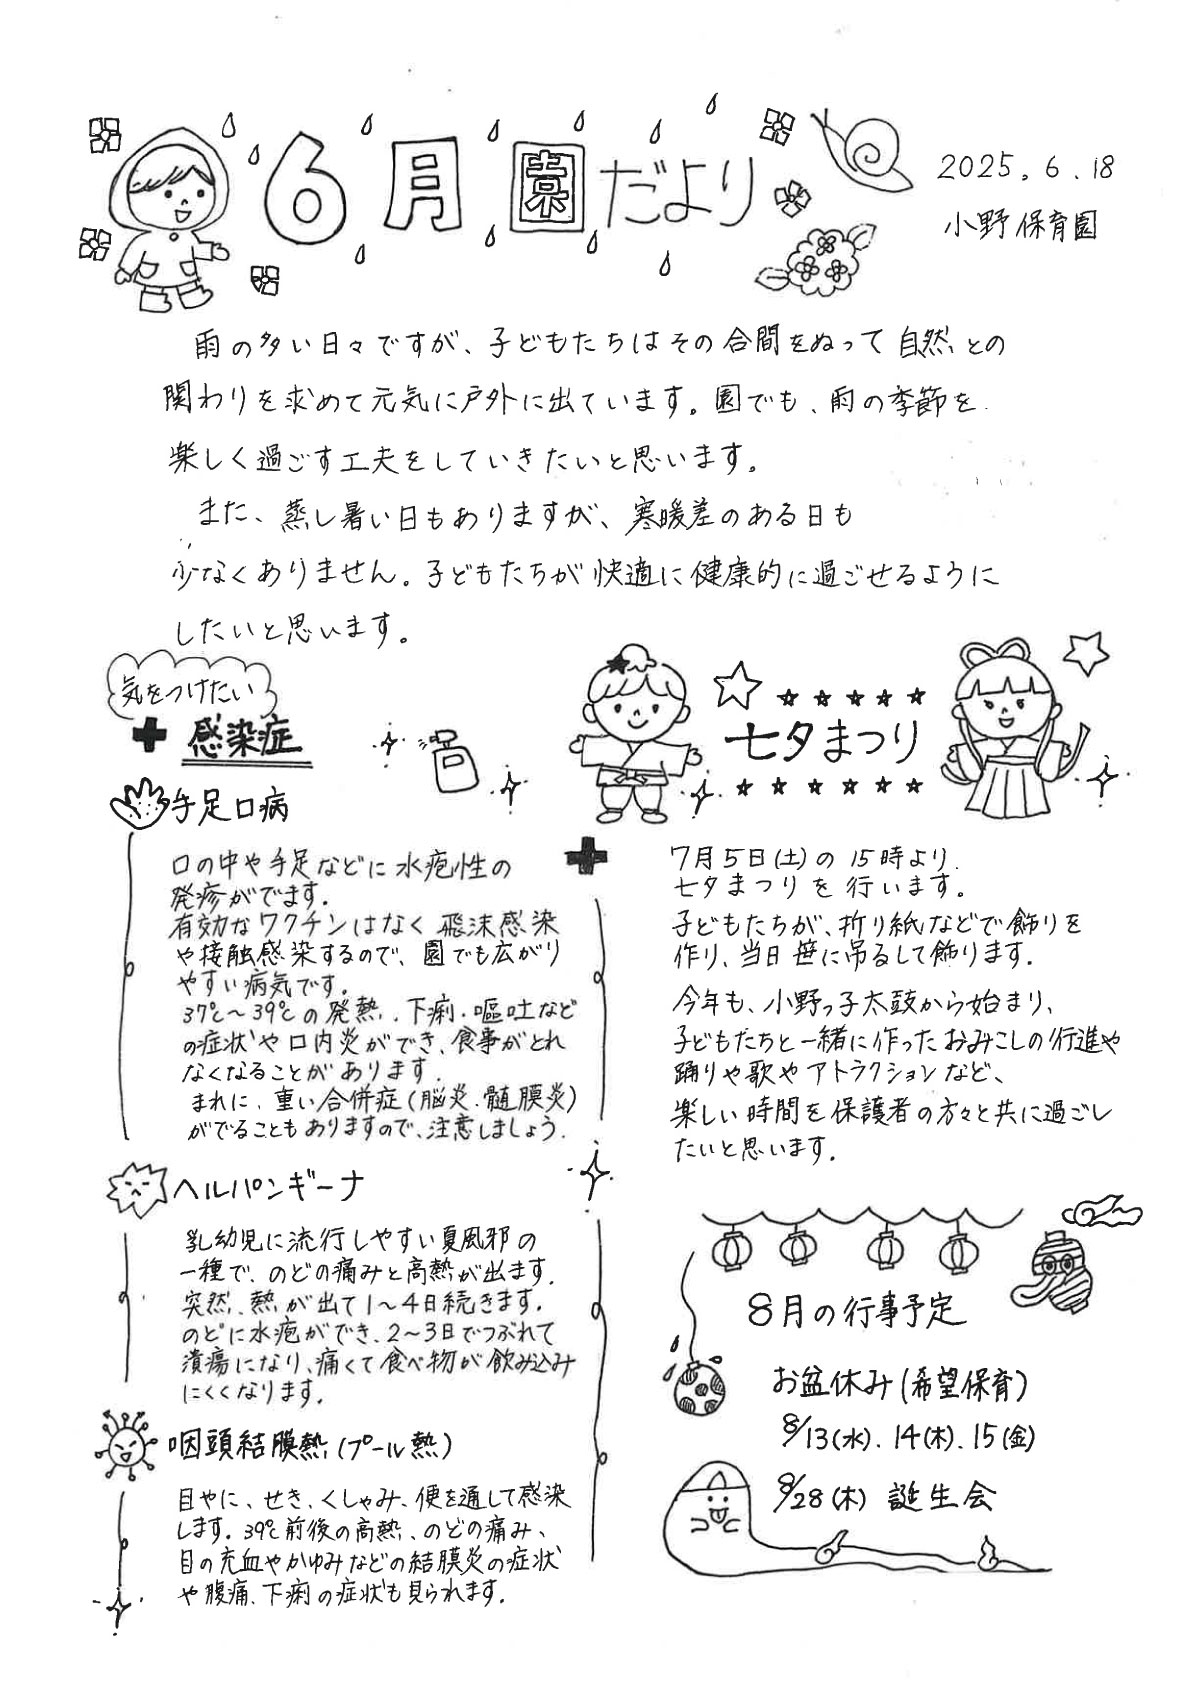 6月園だより
2025.6.18
小野保育園
雨の多い日々ですが、子どもたちはその合間をぬって自然との
関わりを求めて元気に戸外に出ています。園でも、雨の季節を
楽しく過ごす工夫をしていきたいと思います。
また、蒸し暑い日もありますが、寒暖差のある日も
少なくありません。子どもたちが快適に健康的に過ごせるように
したいと思います。
気をつけたい
感染症
手足口病
口の中や手足などに水疱性の
発疹がでます。
有効なワクチンはなく飛沫感染
や接触感染するので、園でも広がり
やすい病気です。
37℃〜39℃の発熱、下痢、嘔吐など
の症状や口内炎ができ、食事がとれ
なくなることがあります。
まれに、重い合併症(脳炎、髄膜炎)
がでることもありますので、注意しましょう。
ヘルパンギーナ
乳幼児に流行しやすい夏風邪の
一種で、のどの痛みと高熱が出ます。
突然、熱が出て1〜4日続きます。
のどに水疱ができ、2〜3日でつぶれて
潰瘍になり、痛くて食べ物が飲み込み
にくくなります。
咽頭結膜熱(プール熱)
目やに、せき、くしゃみ、便を通して感染
します。39℃前後の高熱、のどの痛み、
目の充血やかゆみなどの結膜炎の症状
や腹痛、下痢の症状も見られます。
七夕まつり
7月5日(土)の15時より
七夕まつりを行います。
子どもたちが、折り紙などで飾りを
作り、当日笹に吊るして飾ります。
今年も、小野っ子太鼓から始まり、
子どもたちと一緒に作ったおみこしの行進や
踊りや歌やアトラクションなど、
楽しい時間を保護者の方々と共に過ごし
たいと思います。
8月の行事予定
お盆休み(希望保育)
8/13(水).14(木).15(金)
8/28(木) 誕生会